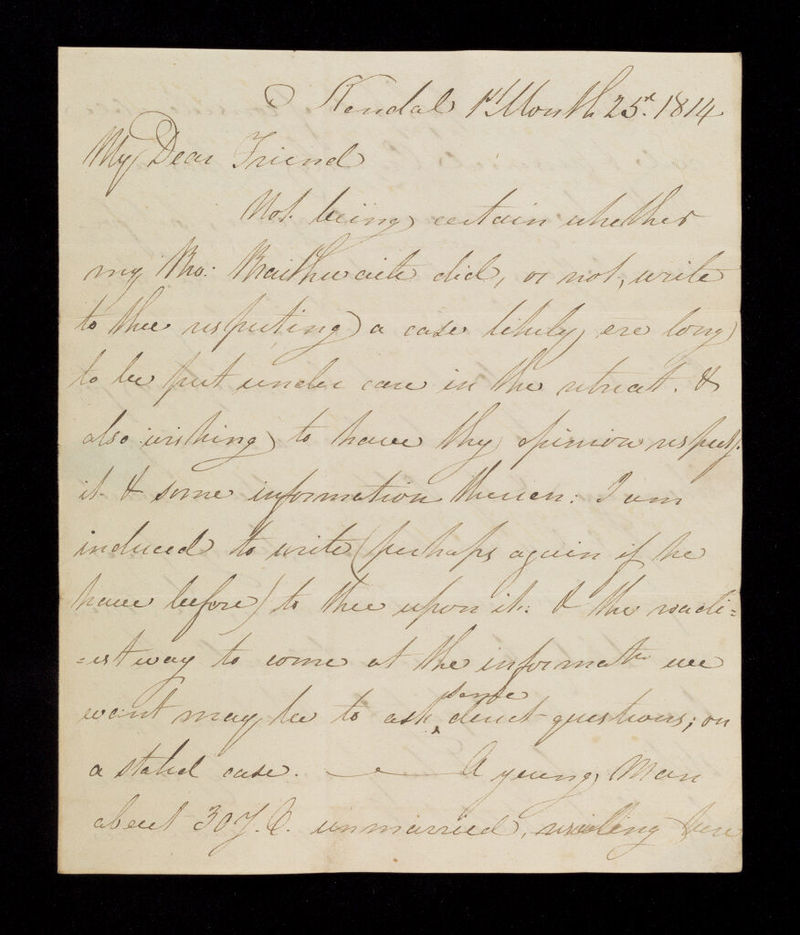 Kendal 1st Month 25th. 1814
My Dear Friend
Not being certain whether
my Bro: Braithwaite did, or not, write
to thee respecting a case likely ere long
to be put under care in the retreat. &
also wishing to have thy opinion respectg.
it & some information thereon: I am
induced to write (perhaps again if he
have before) to thee upon it: & the readi=
=est way to come at the informatn we
want may be to ask some direct questions; on
a stated case. — A young Man
about 30 Y. O. unmarried, residing here